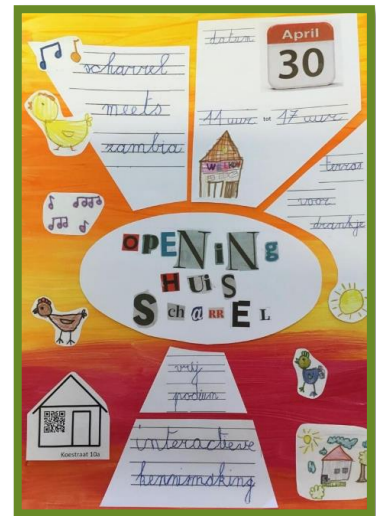 scharrel
meets
zambia
datum
April
30
11 uur tot 17 uur
WELKOM
terras
voor
drankje
OPENiNg
HUiS
Sch@RREL
vrij
podium
interactieve
kennismaking
Koestraat 10a